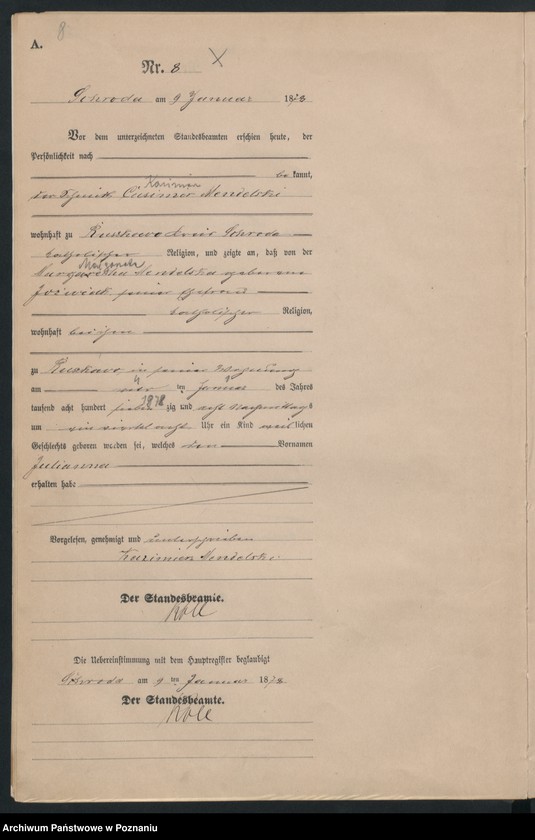 8
A.
Nr. 8
X
Schroda am 9 Januar 1878
Vor dem unterzeichneten Standesbeamten erschien heute, der
Persönlichkeit nach
bekannt,
Kazimier
der Casimer Mendelski
wohnhaft zu Ruszkowo Kreis Schroda
katholischer Religion, und zeigte an, daß von der
Margaretha Mendelska geborene
Jozwiak seiner Ehefrau
katholischer Religion,
wohnhaft bei ihm
zu Ruszkowo, in seiner Wohnung
4
am vier ten Januar des Jahres
1878
tausend acht hundert sieben zig und acht Nachmittags
um ein viertel acht Uhr ein Kind weiblichen
Geschlechts geboren worden sei, welches den Vornamen
Julianna
erhalten habe
Vorgelesen, genehmigt und unterschrieben
Kazimierz Mendelski
Der Standesbeamte.
Die Uebereinstimmung mit dem Hauptregister beglaubigt
Schroda am 9 ten Januar 1878
Der Standesbeamte.
Archiwum Państwowe w Poznaniu